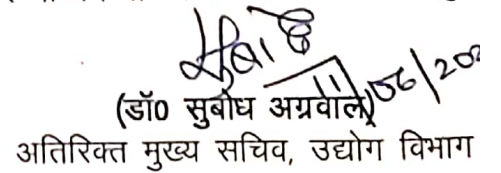 सुबोध
11/06/202
(डॉ0 सुबोध अग्रवाल)
अतिरिक्त मुख्य सचिव, उद्योग विभाग